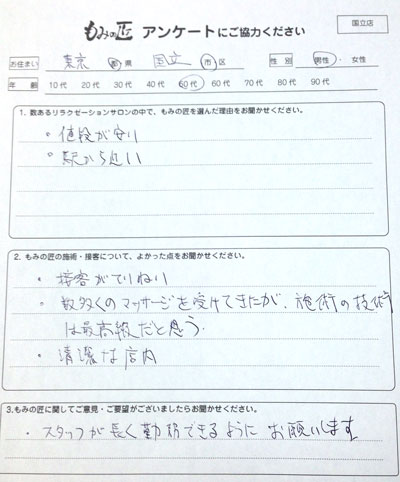 もみの匠 アンケートにご協力ください
国立店
お住まい 東京 都 県 国立 市 区 性別 男性 ・ 女性
年齢 10代 20代 30代 40代 50代 60代 70代 80代 90代
1. 数あるリラクゼーションサロンの中で、もみの匠を選んだ理由をお聞かせください。
・値段が安い
・駅から近い
2. もみの匠の施術・接客について、よかった点をお聞かせください。
・接客がていねい
・数多くのマッサージを受けてきたが、施術の技術
は最高級だと思う.
・清潔な店内
3.もみの匠に関してご意見・ご要望がございましたらお聞かせください。
・スタッフが長く勤務できるように お願いします